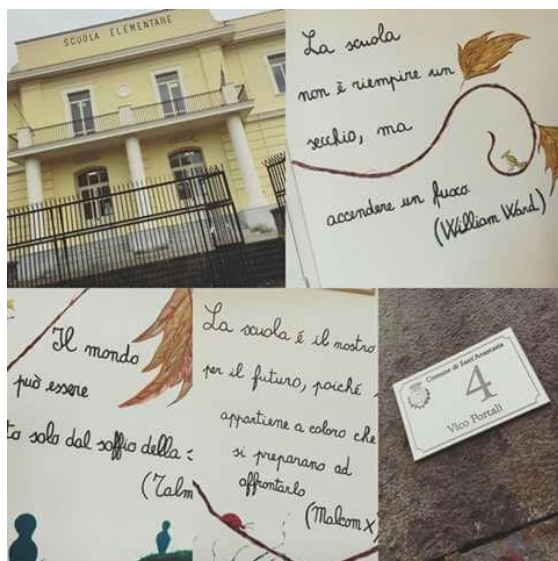 SCUOLA ELEMENTARE
La scuola
non è riempire un
secchio, ma
accendere un fuoco.
(William Ward)
Il mondo
può essere
solo dal soffio della
(Talm
La scuola è il nostro
per il futuro, poiché
appartiene a coloro che
si preparano ad
affrontarlo
(Malcom X)
Comune di Sant'Anastasia
4
Vico Portali